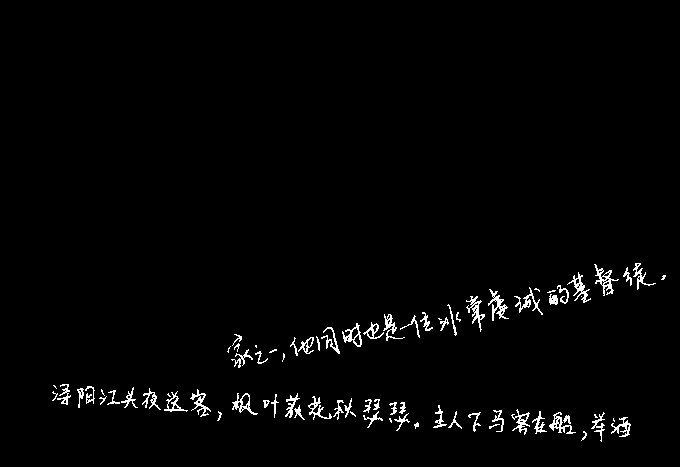 家之一，他同时也是一位非常虔诚的基督徒。
浔阳江头夜送客，枫叶荻花秋瑟瑟。主人下马客在船，举酒